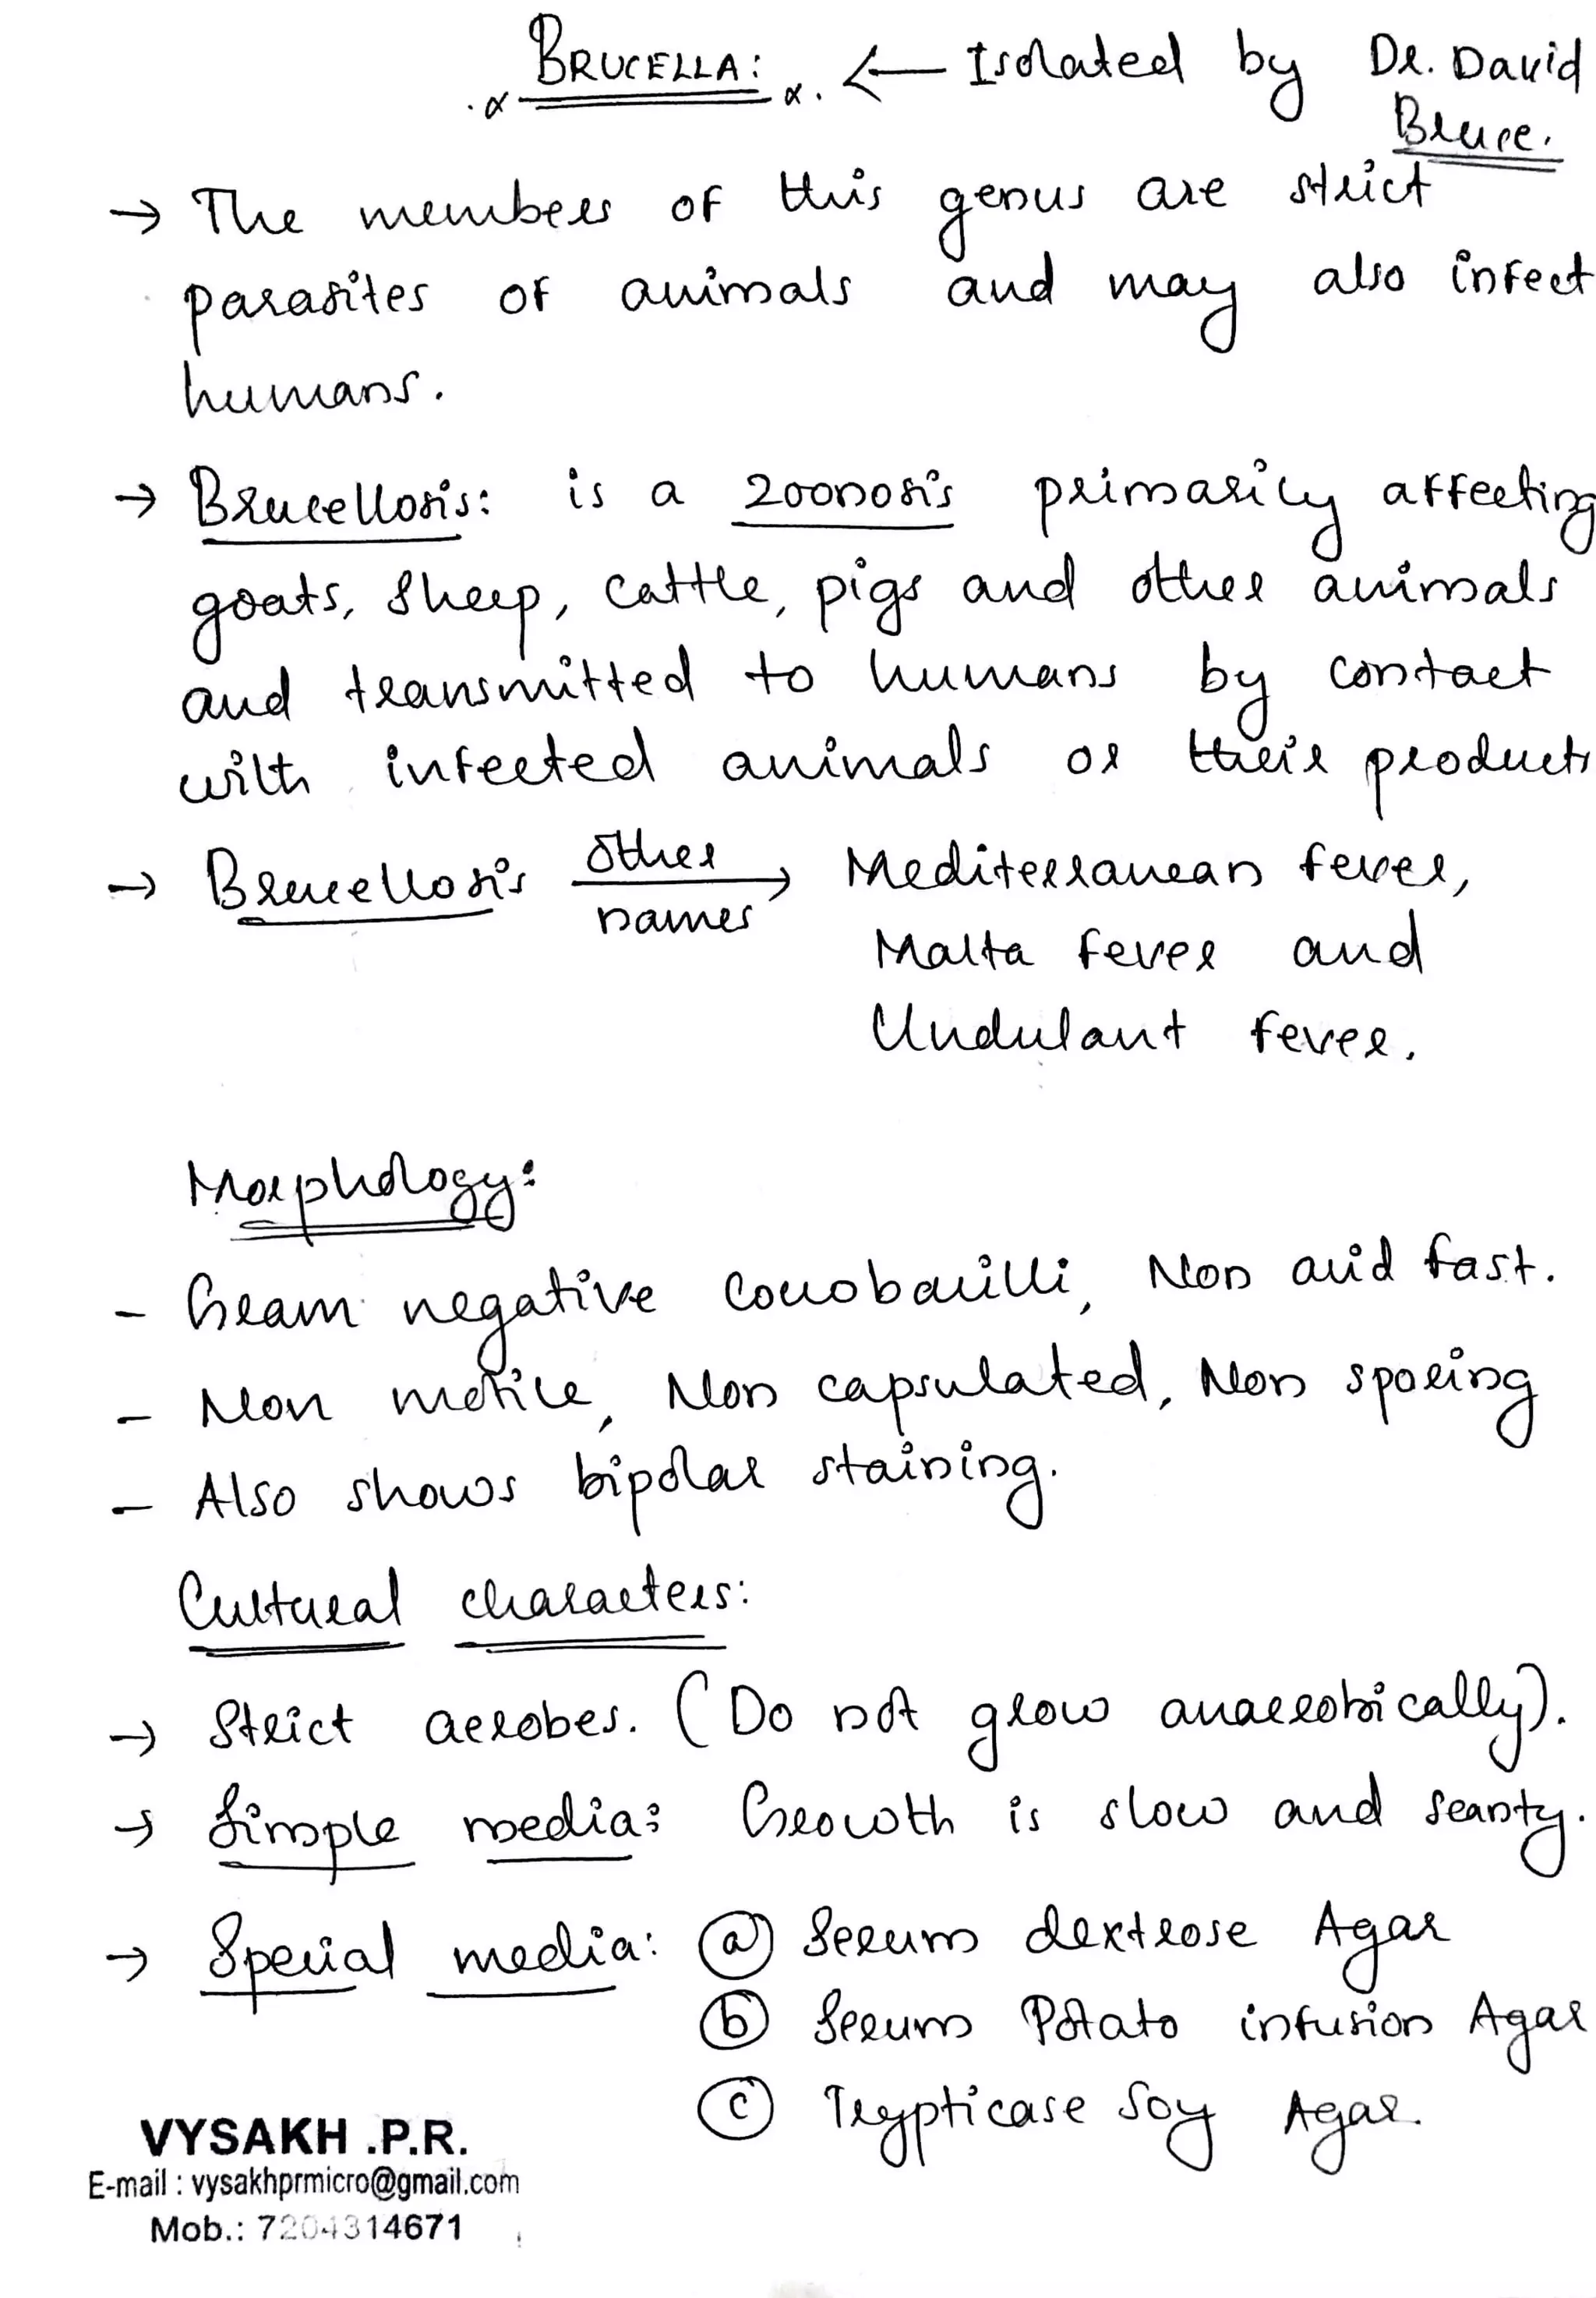 BRUCELLA: ← Isolated by Dr. David
Bruce.
→ The members of this genus are strict
parasites of animals and may also infect
humans.
→ Brucellosis: is a zoonosis primarily affecting
goats, sheep, cattle, pigs and other animals
and transmitted to humans by contact
with infected animals or their products
→ Brucellosis other names → Mediterranean fever,
Malta fever and
Undulant fever.
Morphology:
- Gram negative coccobacilli, Non acid fast.
- Non motile, Non capsulated, Non sporing
- Also shows bipolar staining.
Cultural characters:
→ Strict aerobes. (Do not grow anaerobically).
→ Simple media: Growth is slow and scanty.
→ Special media: (a) Serum dextrose Agar
(b) Serum Potato infusion Agar
(c) Trypticase Soy Agar.
VYSAKH .P.R.
E-mail : vysakhprmicro@gmail.com
Mob.: 7204314671